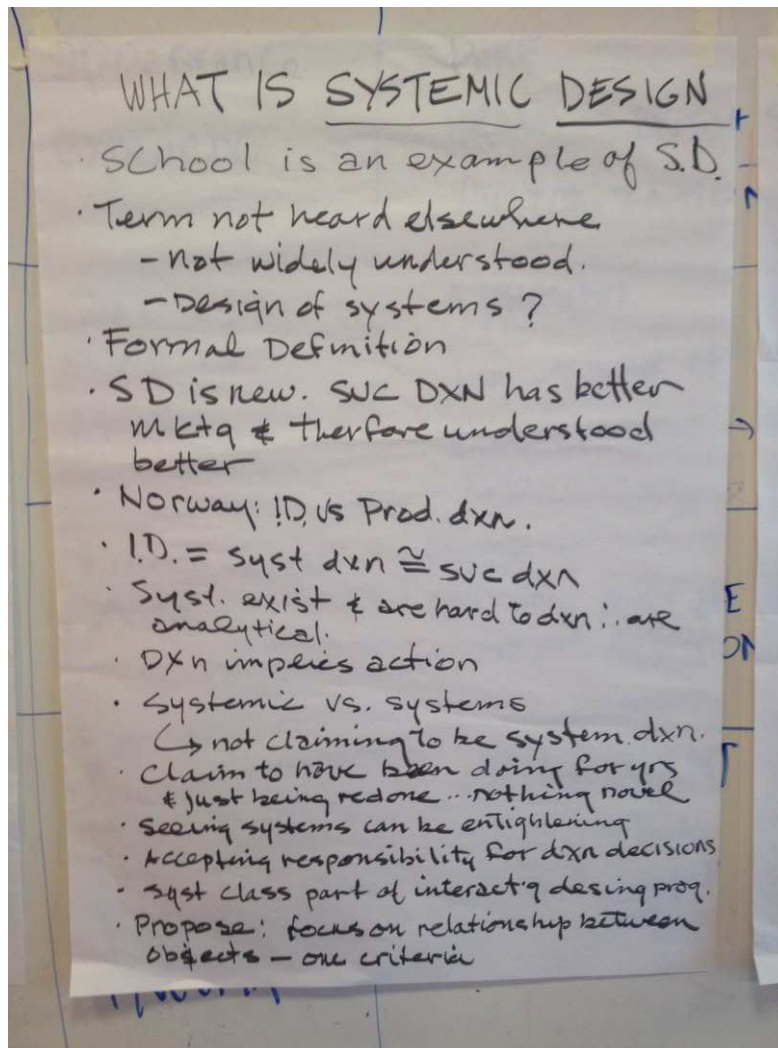 WHAT IS SYSTEMIC DESIGN
· School is an example of S.D.
· Term not heard elsewhere
- not widely understood.
- Design of systems?
· Formal Definition
· SD is new. SVC DXN has better
mktg & therfore understood
better
· Norway: I.D. vs Prod. dxn.
· I.D. = Syst dxn ≅ svc dxn
· Syst. exist & are hard to dxn ∴ are
analytical.
· DXn implies action
· Systemic vs. systems
↳ not claiming to be system dxn.
· Claim to have been doing for yrs
& just being redone... nothing novel
· Seeing systems can be entighlening
· Accepting responsibility for dxn decisions
· Syst class part of interact'g desing prog.
· Propose: focus on relationship between
objects – one criteria
E